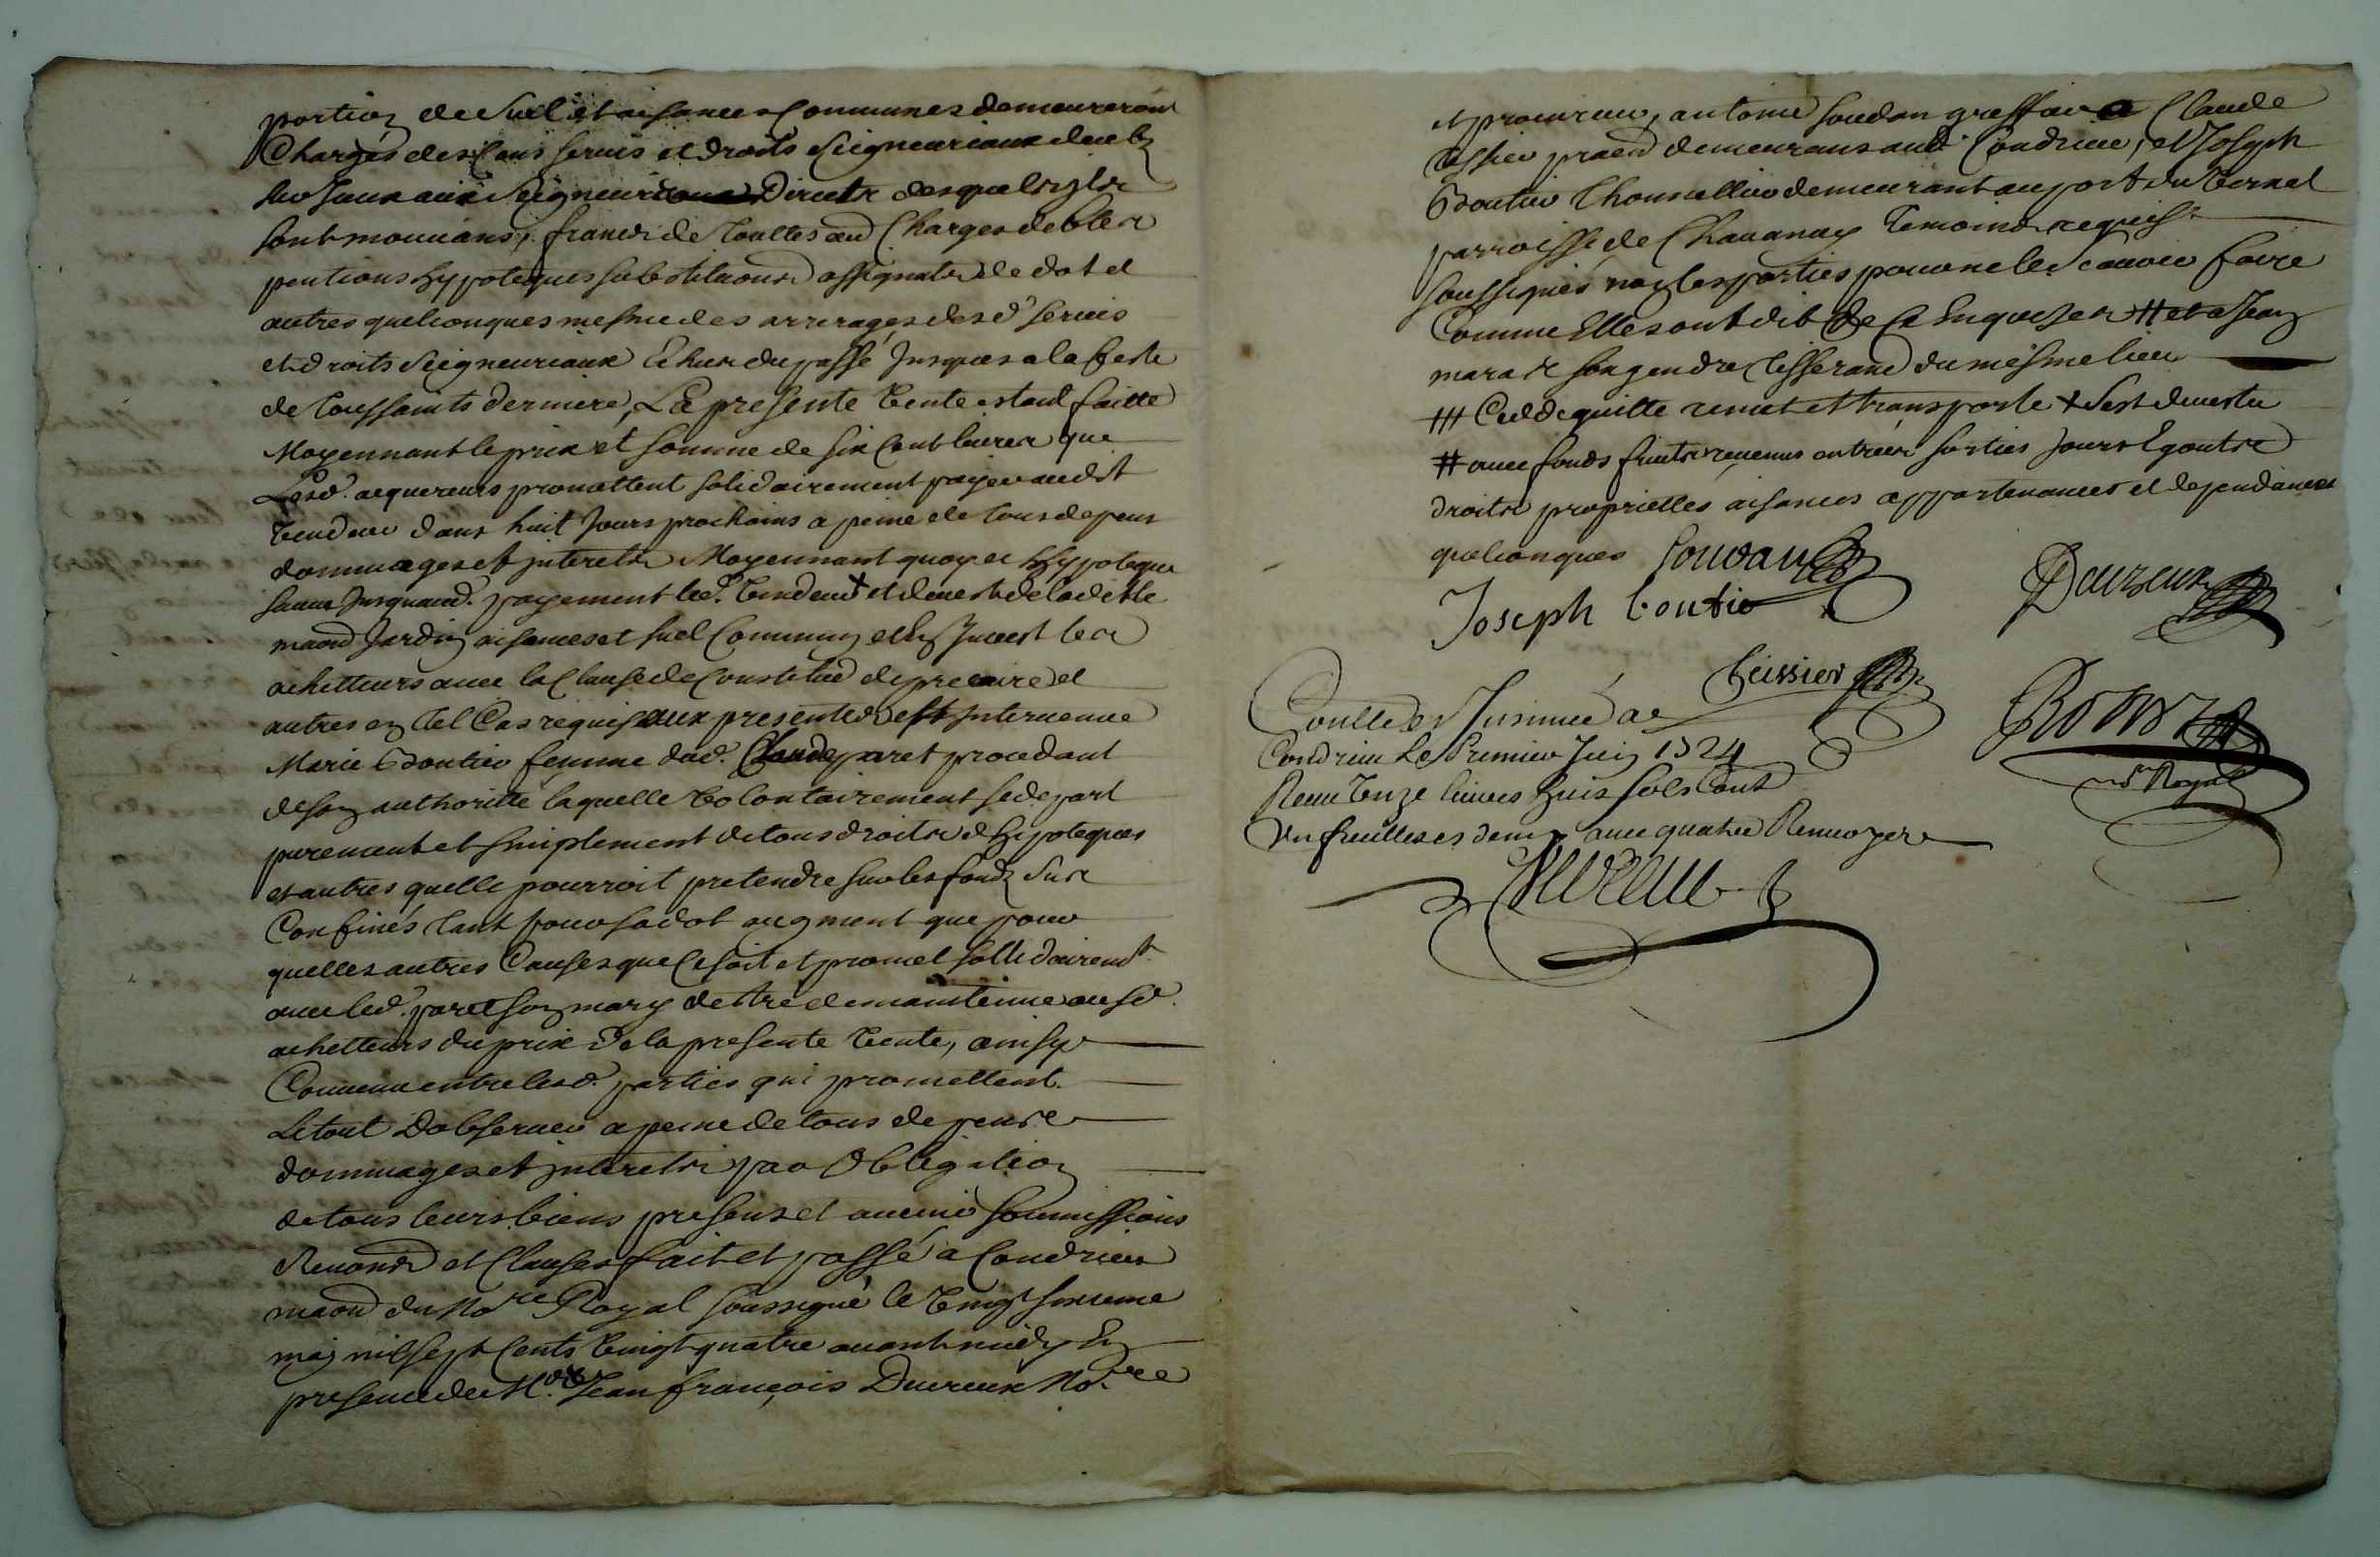 portion de suel et aisances Communes demeureront
Chargés des Cens servis et droits Seigneuriaux deubz
sur Iceux aux Seigneurs Directz desquels ilz
sont mouvans, francs de toultes aud Charges debtes
pentions hypoteques substitutions assignats de dot et
autres quelconques mesme des arrerages desd. servis
et droits Seigneuriaux Echus du passé Jusques a la feste
de toussaints derniere, La presente Vente estant faitte
Moyennant le prix et somme de six Cent livres que
Lesd. acquereurs promettent solidairement payer audit
Vendeur dans huit Jours prochains a peine de tous depens
dommages et interets Moyennant quoy et Hypoteque
sauve Jusquaud. payement led. Vendeur + et devest de laditte
maison Jardin aisances et suel Commun et En Invest les
achetteurs avec la Clause de Constitut de precaire et
autres en tel Cas requis aux presentes est intervenue
Marie Boutier femme dud. Claude paret procedant
de son authoritté laquelle Volontairement se depart
purement et simplement de tous droits d'hypoteques
et autres quelle pourroit pretendre sur les fondz sus
Confinés tant pour sa dot augment que pour
quelles autres Causes que ce soit et promet sollidairemt.
avec led. paret son mary de
achetteurs du prix de la presente Vente, ainsy
Convenu entre lesd. parties qui promettent
Le tout D'observer a peine de tous depens
dommages et interets par Obligation
de tous leurs biens presens et avenir soumissions
Renonds et Clauses fait et passé a Condrieu
maison du No.re Royal soussigné le Vingt sixieme
may mil sept Cents Vingt quatre avant midy En
presence de M. Jean françois Duvreux No.re
et procureur, antoine soudan greffier Claude
tessier demeurans aud Condrieu, et Joseph
Boutier Thonnellier demeurant au port du Vernet
parroisse de Chavanay temoins requis
soussignés non les parties pour ne le scavoir faire
Comme Elles ont dit de ce Enquises # et a Jean
maras son gendre tisserand du mesme lieu
### Cedde quitte remet et transporte + s'est devestu
# avec fonds fruits revenus entrées sorties Jours Egoutz
droits proprietés aisances appartenances et dependances
quelconques Soudan
Joseph boutie
Duvreux
teissier
Conttrolé et Insinué a
Condrieu Le Premier Juin 1724
Receu Onze livres huis sols Cont
Un feuillet et demy avec quatre Renvoyez
n.re Royal